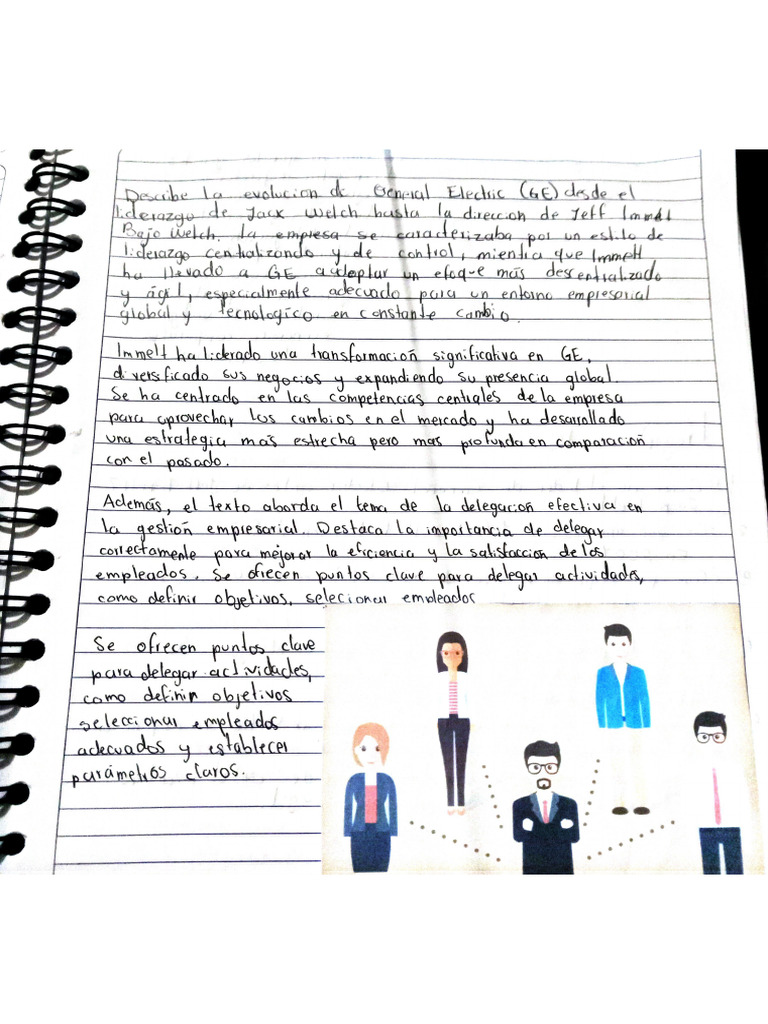 Describe la evolucion de General Electric (GE) desde el
liderazgo de Jack Welch hasta la direccion de Jeff Immelt
Bajo Welch, la empresa se caracterizaba por un estilo de
liderazgo centralizando y de control, mientra que Immelt
ha llevado a GE a adoptar un efoque más descentralizado
y ágil, especialmente adecuado para un entorno empresarial
global y tecnologíco en constante cambio.
Immelt ha liderado una transformación significativa en GE,
diversficado sus negocios y expandiendo su presencia global.
Se ha centrado en las competencias centrales de la empresa
para aprovechar los cambios en el mercado y ha desarrollado
una estrategia mas estrecha pero mas profunda en comparación
con el pasado.
Además, el texto aborda el tema de la delegación efectiva en
la gestión empresarial. Destaca la importancia de delegar
correctamente para mejorar la eficiencia y la satisfacción de los
empleados. Se ofrecen puntos clave para delegar actividades,
como definir objetivos, selecionar empleados
Se ofrecen puntos clave
para delegar actividades,
como definir objetivos
seleccionar empleados
adecuados y establecer
parámetros claros.